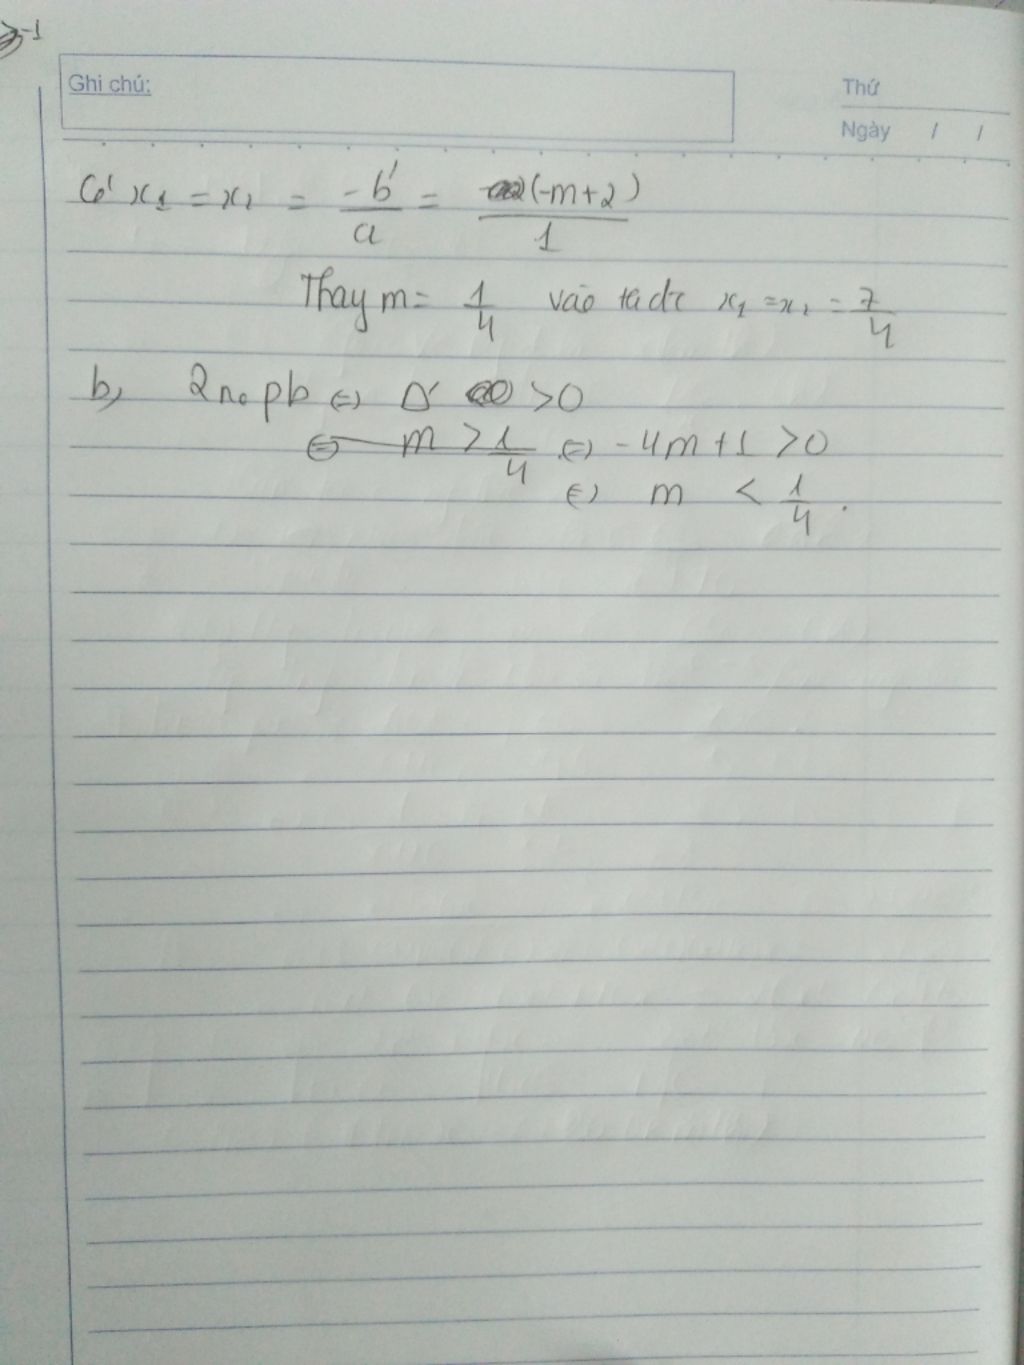 Ghi chú:
Thứ
Ngày / /
Có x1 = x2 = -b'/a = (-m+2)/1
Thay m = 1/4 vào ta đc x1 = x2 = 7/4
b, 2 no pb ⇔ Δ' > 0
⇔ m > 1/4 ⇔ -4m + 1 > 0
⇔ m < 1/4 .